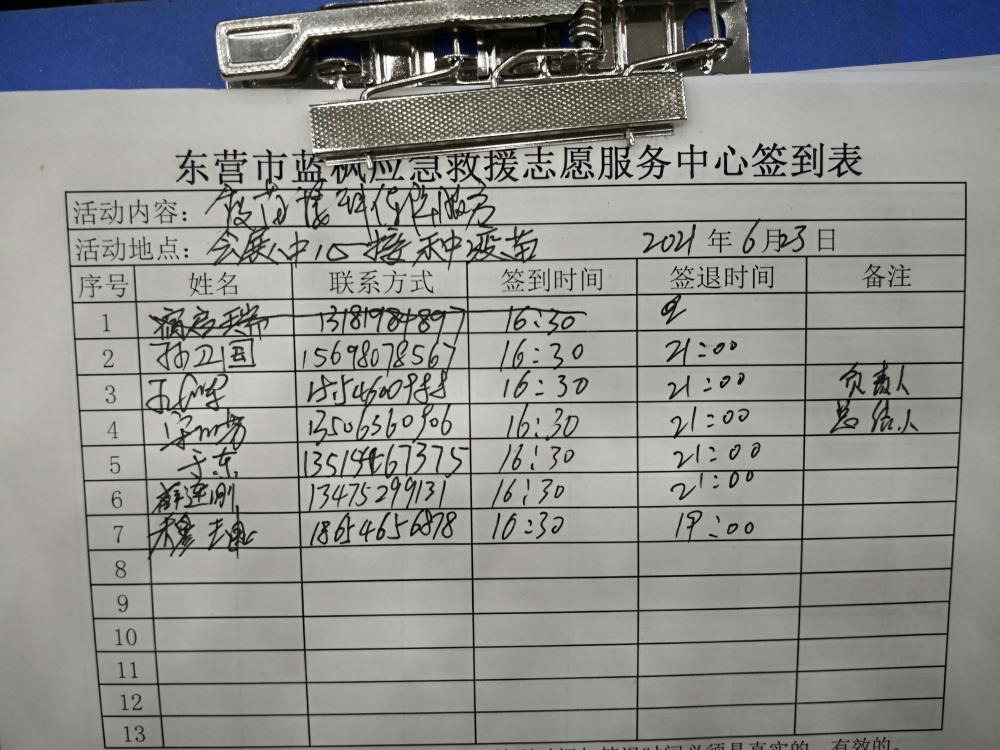 东营市蓝枫应急救援志愿服务中心签到表
活动内容：疫苗接种
活动地点：会展中心接种疫苗 2021年6月23日
序号 姓名 联系方式 签到时间 签退时间 备注
1 13181984897 16:30
2 孙卫国 15698078567 16:30 21:00
3 16:30 21:00 负责人
4 13506360906 16:30 21:00 总结人
5 于东 13514467375 16:30 21:00
6 薛连刚 13475299131 16:30 21:00
7 18654656878 16:30 19:00
8
9
10
11
12
13
签退时间必须是真实的、有效的。